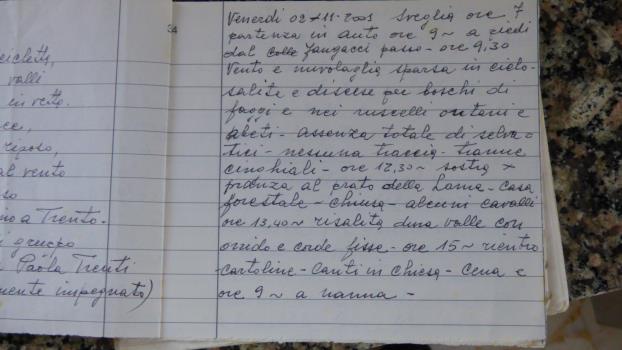 cicletts,
valli
in vetta.
ce,
riposo,
al vento
so
no a Trento.
i gruppo
Paola Trenti
mente impegnato)
34
Venerdì 02-11-2001 Sveglia ore 7
partenza in auto ore 9 ~ a piedi
dal Colle Fangacci passo - ore 9,30
Vento e nuvolaglia sparsa in cielo -
salite e discese per boschi di
faggi e nei ruscelli ontani e
abeti - assenza totale di selva
tici - nessuna traccia - tranne
cinghiali - ore 12,30 ~ sosta x
pranzo al prato della Lama - Casa
forestale - chiusa - alcuni cavalli
ore 13,40 ~ risalita d'una valle con
orrido e corde fisse - ore 15 ~ rientro
Cartoline - Canti in Chiesa - Cena e
ore 9 ~ a nanna -